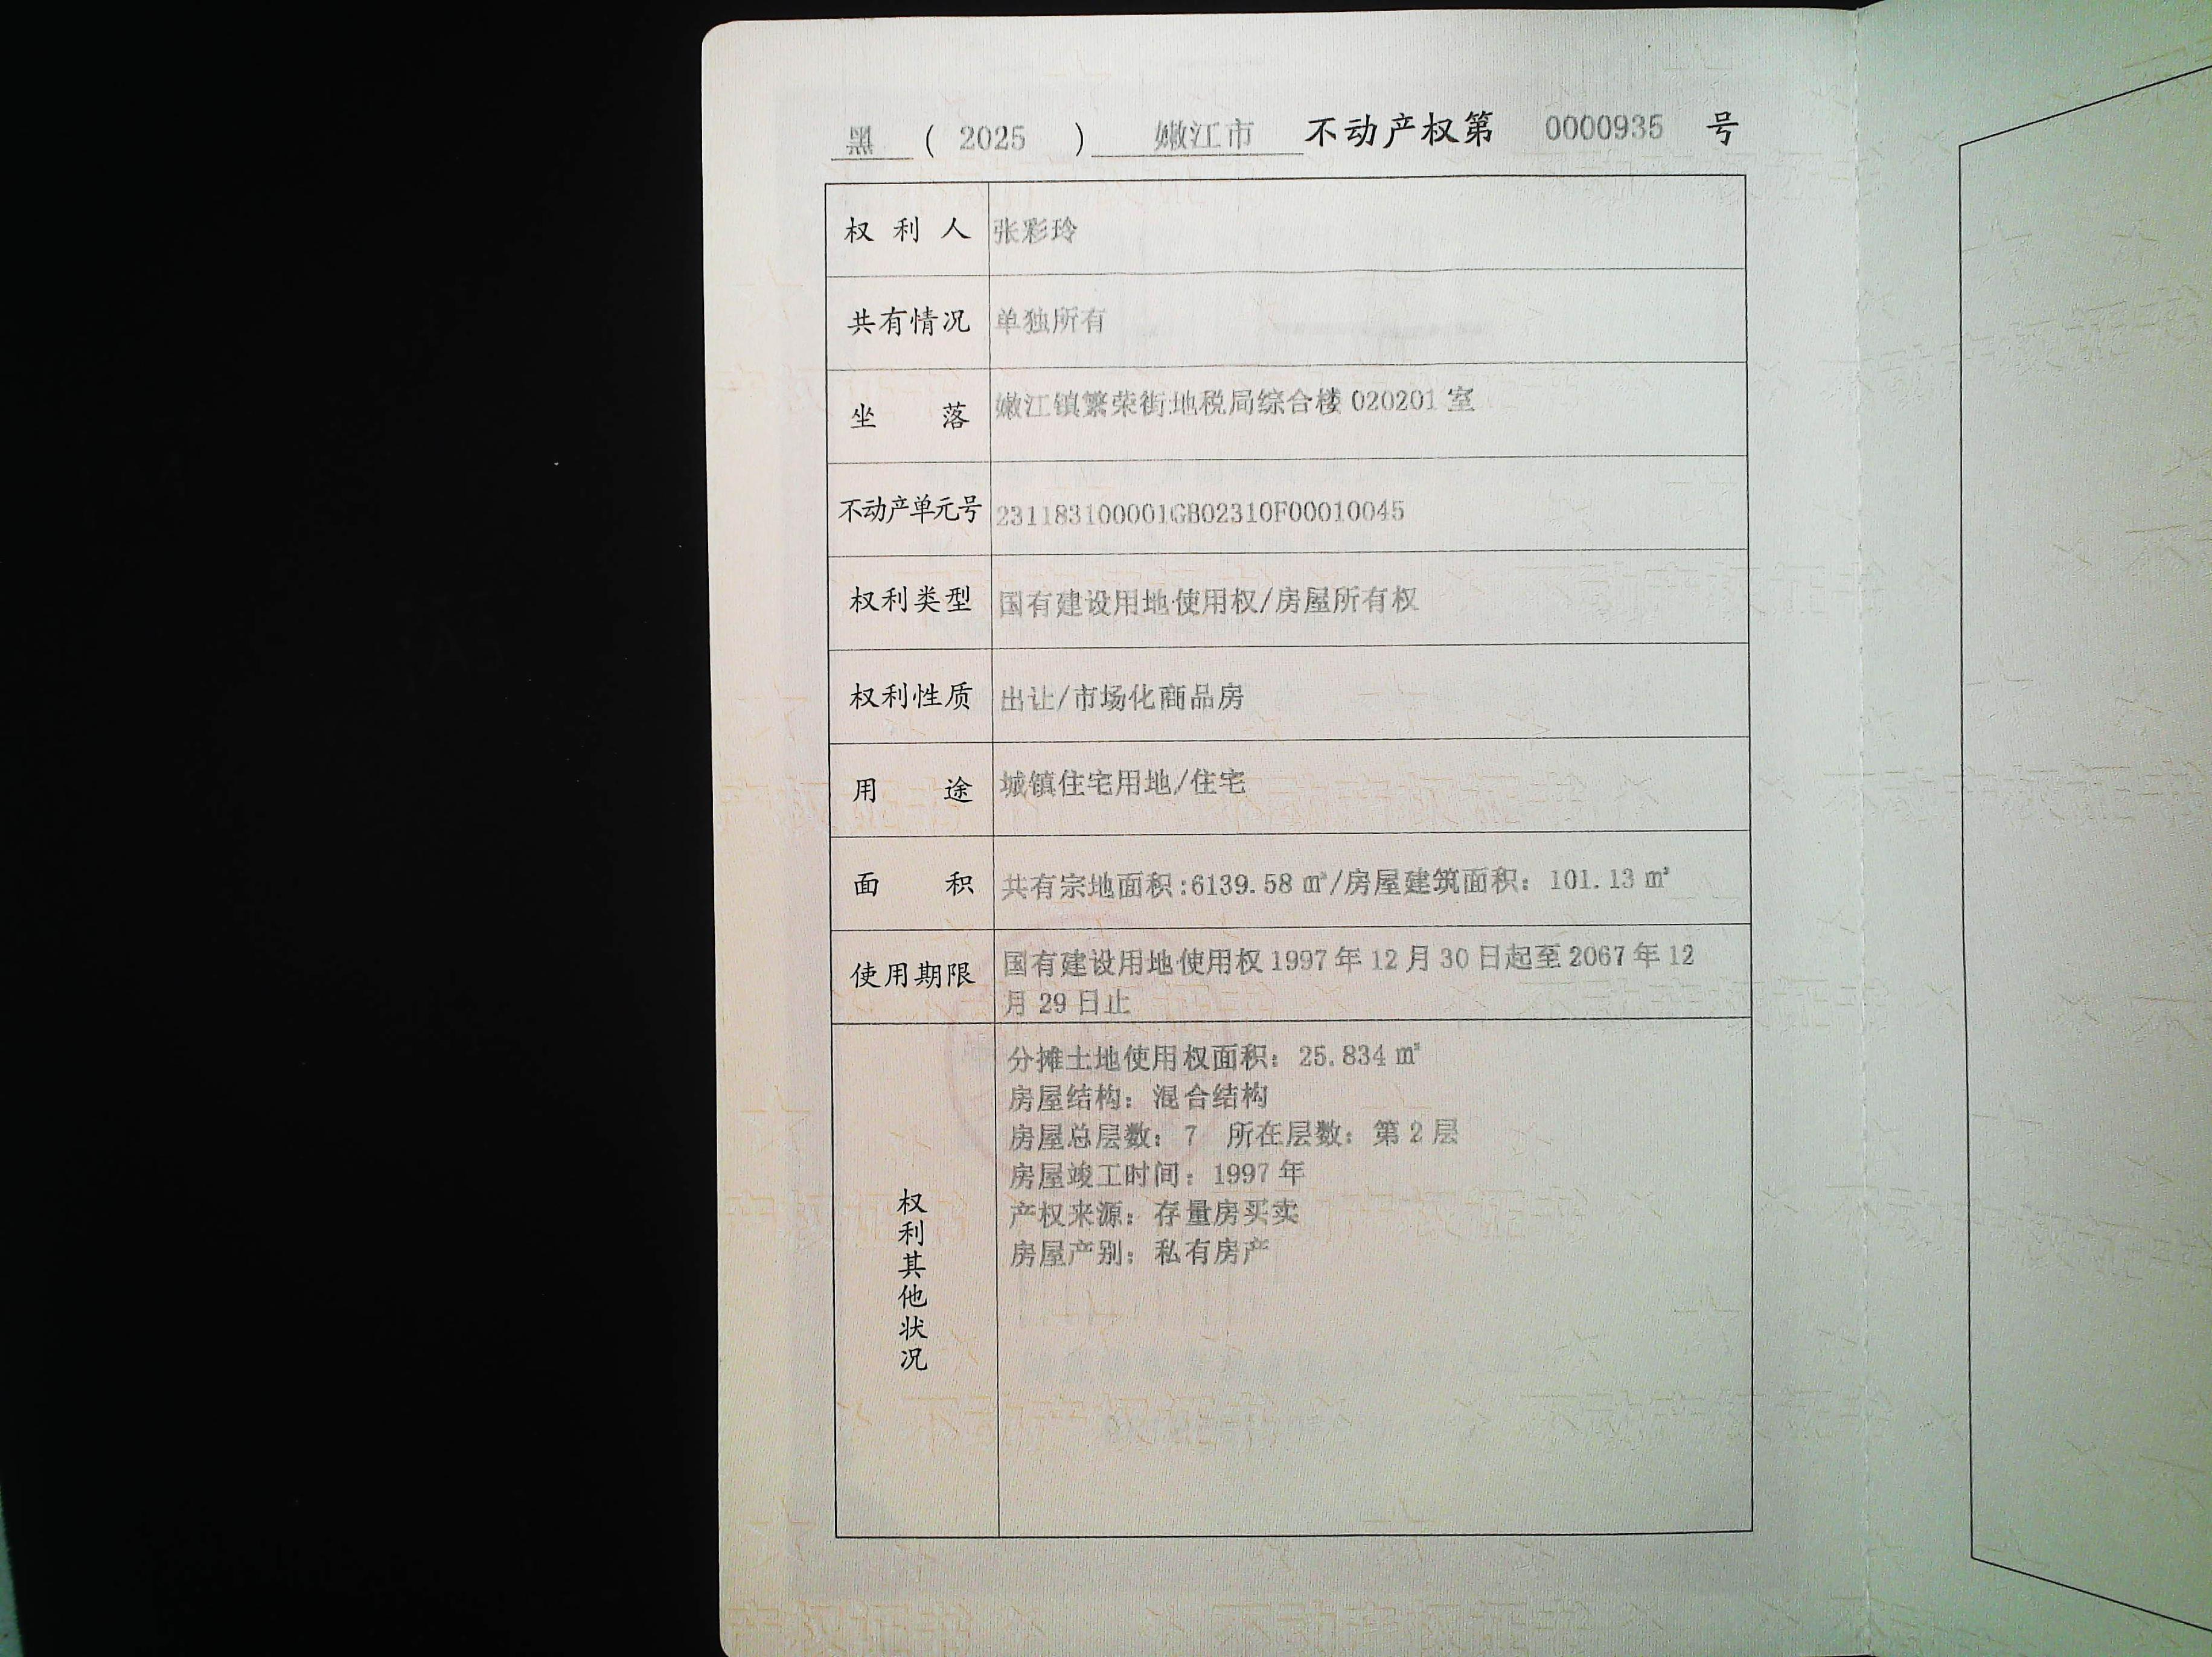 黑 ( 2025 ) 嫩江市 不动产权第 0000935 号
权利人 张彩玲
共有情况 单独所有
坐落 嫩江镇繁荣街地税局综合楼 020201 室
不动产单元号 231183100001GB02310F00010045
权利类型 国有建设用地使用权/房屋所有权
权利性质 出让/市场化商品房
用途 城镇住宅用地/住宅
面积 共有宗地面积:6139.58 ㎡/房屋建筑面积: 101.13 ㎡
使用期限 国有建设用地使用权 1997 年 12 月 30 日起至 2067 年 12
月 29 日止
权利其他状况
分摊土地使用权面积: 25.834 ㎡
房屋结构: 混合结构
房屋总层数: 7 所在层数: 第 2 层
房屋竣工时间: 1997 年
产权来源: 存量房买卖
房屋产别: 私有房产